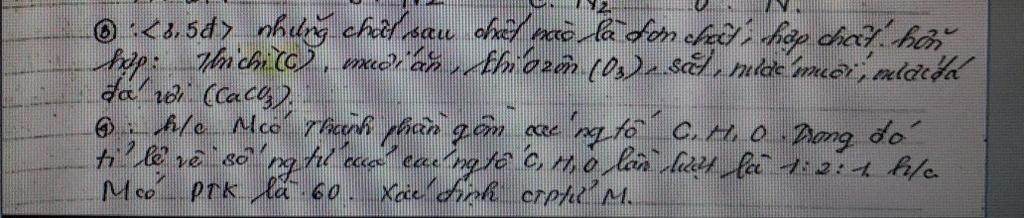 ③ : <3,5đ> những chất sau chất nào là đơn chất, hợp chất, hỗn
hợp: Thi chì (C), muối ăn, khí ozôn (O3), sắt, nước muối, nước đá
đá vôi (CaCO3).
④ : h/c M có thành phần gồm các ng tố C, H, O. Trong đó
tỉ lệ về số ng tử của các ng tố C, H, O lần lượt là 1:2:1 h/c
M có PTK là 60. Xác định CTPtử M.